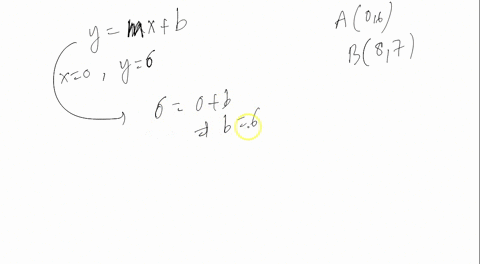 y = mx + b
x=0 , y=6
6 = 0+b
⇒ b=6
A(0,6)
B(8,7)